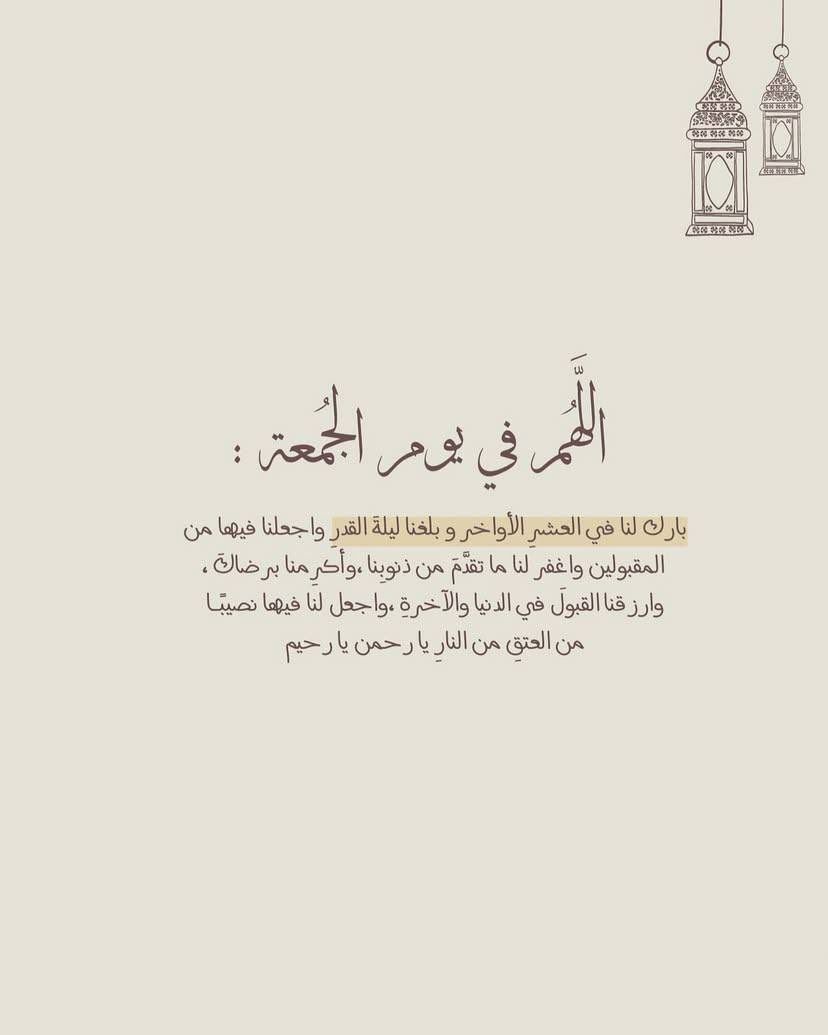 اللَّهُم في يوم الجُمعة :
بارك لنا في العشرِ الأواخر و بلغنا ليلةَ القدرِ واجعلنا فيها من
المقبولين واغفر لنا ما تقدَّمَ من ذنوبِنا ،وأكرِمنا برضاكَ ،
وارزقنا القبولَ في الدنيا والآخرةِ ،واجعل لنا فيها نصيبًا
من العتقِ من النارِ يا رحمن يا رحيم